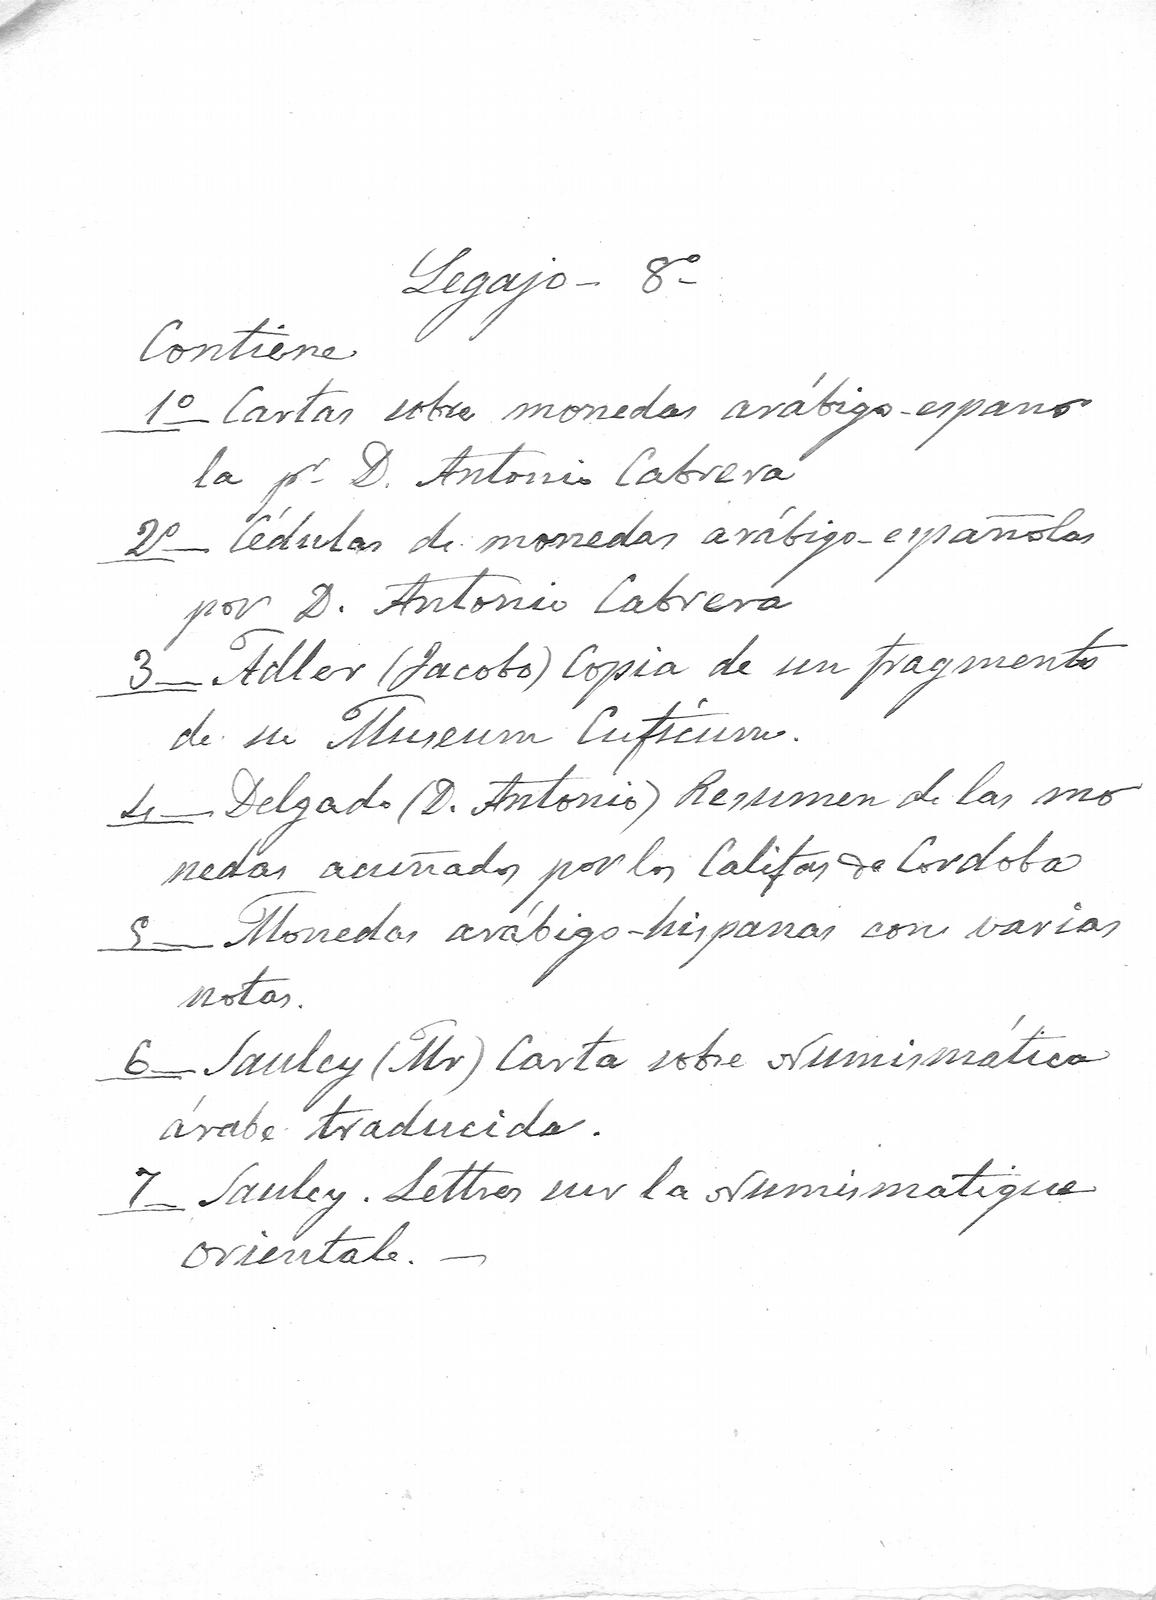 Legajo - 8º
Contiene
1º Cartas sobre monedas arábigo-espano
la pr. D. Antonio Cabrera
2º Cédulas de monedas arábigo-españolas
por D. Antonio Cabrera
3 Adler (Jacobo) Copia de un fragmento
de su Museum Cuficum.
4 Delgado (D. Antonio) Resumen de las mo
nedas acuñados por los Califas de Cordoba
5 Monedas arábigo-hispanas con varias
notas.
6 Saulcy (Mr) Carta sobre Numismática
árabe traducida.
7 Saulcy. Lettres sur la Numismatique
orientale. —